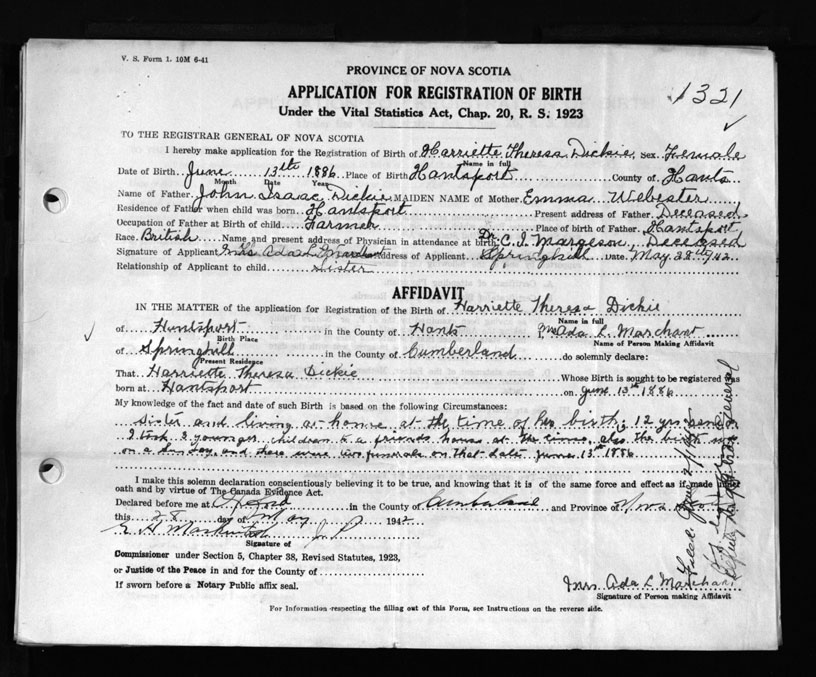 V. S. Form 1. 10M 6-41
PROVINCE OF NOVA SCOTIA
1321
APPLICATION FOR REGISTRATION OF BIRTH
Under the Vital Statistics Act, Chap. 20, R. S. 1923
TO THE REGISTRAR GENERAL OF NOVA SCOTIA
I hereby make application for the Registration of Birth of Harriette Theresa Dickie, sex Female
Name in full
Date of Birth June 13th 1886 Place of Birth Hantsport County of Hants
Month Date Year
Name of Father John Isaac Dickie MAIDEN NAME of Mother Emma Webster
Residence of Father when child was born Hantsport Present address of Father Deceased
Occupation of Father at Birth of child Farmer Place of birth of Father Hantsport
Race British Name and present address of Physician in attendance at birth Dr. C. I. Margeson, Deceased
Signature of Applicant Mrs Ada L Marchant Address of Applicant Springhill Date May 28th 942
Relationship of Applicant to child Sister
AFFIDAVIT
IN THE MATTER of the application for Registration of the Birth of Harriette Theresa Dickie
Name in full
of Hantsport in the County of Hants Mrs Ada L. Marchant
Birth Place Name of Person Making Affidavit
of Springhill in the County of Cumberland do solemnly declare:
Present Residence
That Harriette Theresa Dickie Whose Birth is sought to be registered was
born at Hantsport on June 13th 1886
My knowledge of the fact and date of such Birth is based on the following Circumstances:
Sister and living at home at the time of her birth, 12 yrs
I took 3 younger children to a friends house at the time, also the birth was
on a Sunday, and there were two funerals on that date June 13th 1886
I make this solemn declaration conscientiously believing it to be true, and knowing that it is of the same force and effect as if made under
oath and by virtue of The Canada Evidence Act.
Declared before me at Oxford in the County of Cumberland and Province of Nova
this 28 day of May 1942
J P
Signature of
Commissioner under Section 5, Chapter 38, Revised Statutes, 1923,
or Justice of the Peace in and for the County of
If sworn before a Notary Public affix seal.
Mrs Ada L Marchant
Signature of Person making Affidavit
For Information respecting the filling out of this Form, see Instructions on the reverse side.
Deputy Registrar General